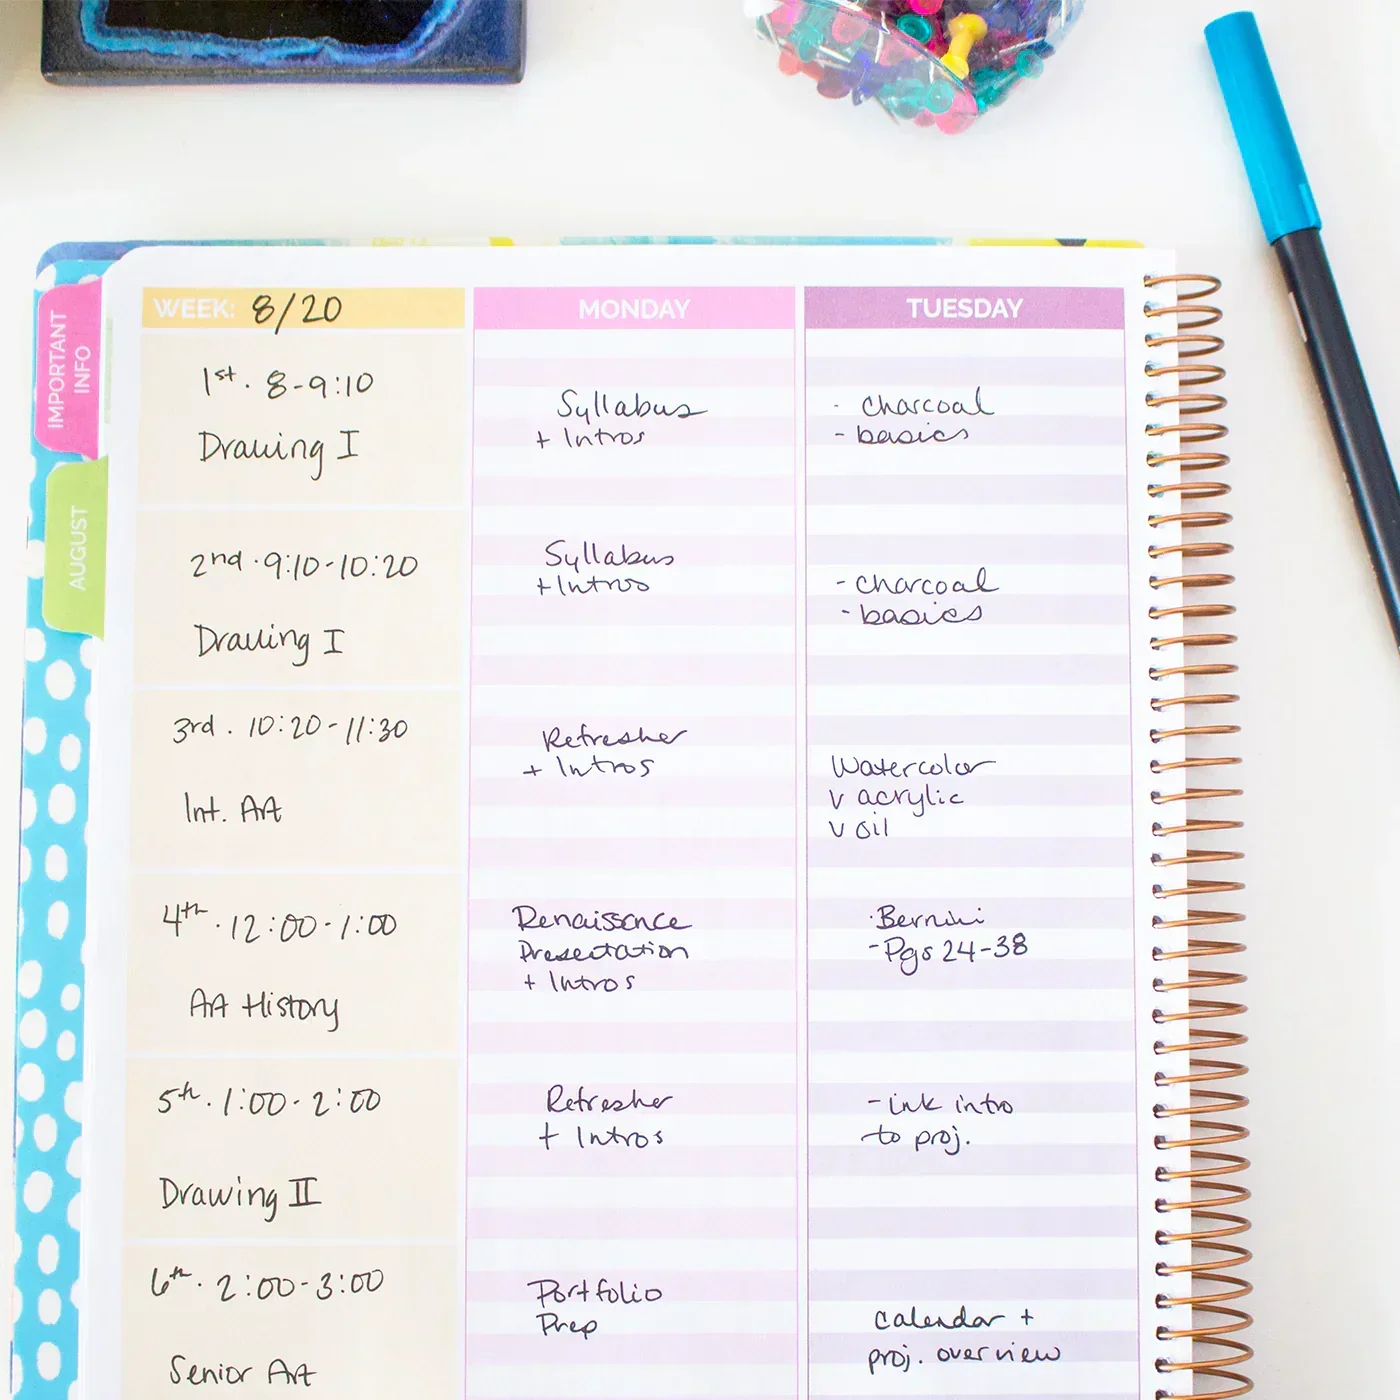 WEEK: 8/20
MONDAY
TUESDAY
IMPORTANT
INFO
AUGUST
1st. 8-9:10
Drawing I
Syllabus
+ Intros
- charcoal
- basics
2nd. 9:10-10:20
Drawing I
Syllabus
+ Intros
- charcoal
- basics
3rd. 10:20-11:30
Int. Art
Refresher
+ Intros
Watercolor
v acrylic
v oil
4th. 12:00-1:00
Art History
Renaissance
Presentation
+ Intros
- Bernini
- Pgs 24-38
5th. 1:00-2:00
Drawing II
Refresher
+ Intros
- ink intro
to proj.
6th. 2:00-3:00
Senior Art
Portfolio
Prep
calendar +
proj. overview